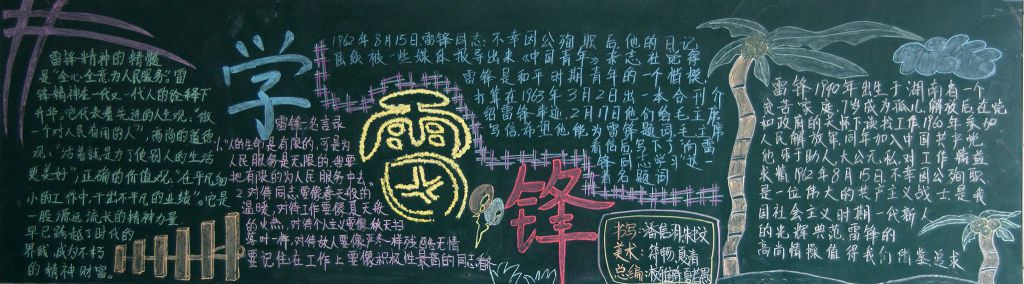 雷锋精神的精髓
是"全心全意为人民服务;雷
锋精神在一代又一代人的诠释下
升华。它代表着先进的人生观,"做
一个对人民有用的人",高尚的道德
观,"活着就是为了他别人的生活
更美好",正确的价值观,"在平凡细
小的工作中,干出不平凡的业绩"。它是
一股源远流长的精神力量
早已跨越了时代的
界线,成为不朽
的精神财富。
学
雷
锋
雷锋名言录
1.人的生命是有限的,可是为
人民服务是无限的,我要
把有限的为人民服务中去。
2.对待同志要像春天般的
温暖,对待工作要像夏天般
的火热,对待个人主义要像秋天扫
落叶一样,对待敌人要像严冬一样残酷无情
要记住:在工作上要像积极性最高的同志看齐
1962年8月15日,雷锋同志不幸因公殉职后他的日记
陆续被一些媒体报导出来《中国青年》杂志社觉得
雷锋是和平时期青年的一个楷模,
打算在1963年3月2日出一本合刊介
绍雷锋事迹,2月17日他们给毛主席
写信,希望他能为雷锋题词,毛主席
看信后写下了"向雷
锋同志学习"这一
著名题词
书写:
美术:
总编:
雷锋1940年出生于湖南省一个
贫苦家庭,7岁成为孤儿,解放后在党
和政府的关怀下读书工作1960年参加
人民解放军,同年加入中国共产党
他乐于助人,大公无私,对工作精益
求精1962年8月15日雷锋因公殉职
是一位伟大的共产主义战士,是我
国社会主义时期一代新人
的光辉典范,雷锋的
高尚情操值得我们借鉴追求